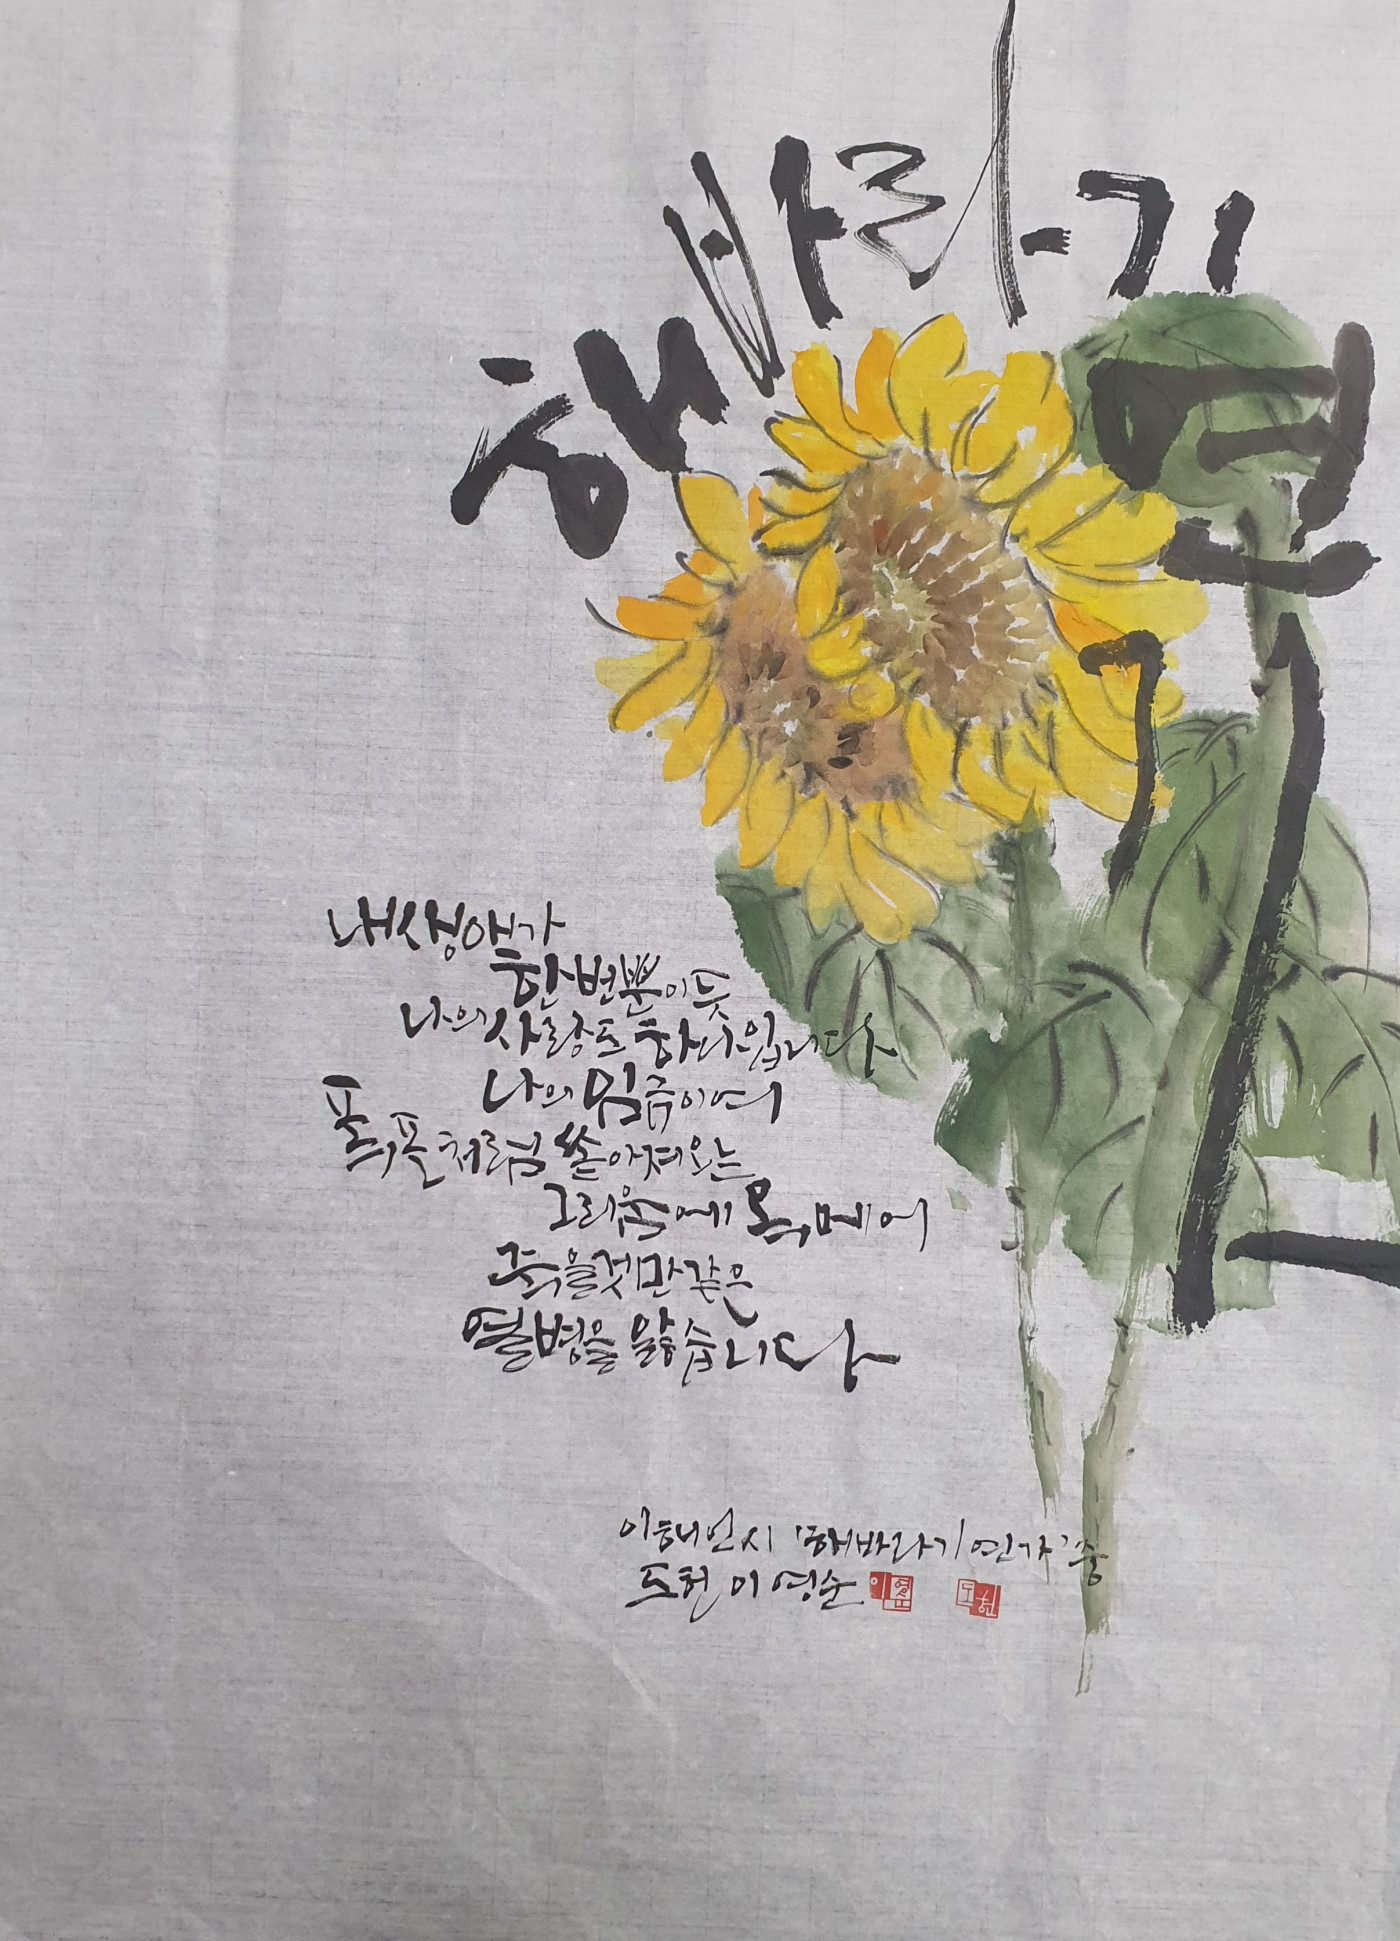 해바라기 연가
내 생애가
한번뿐이듯
나의 사랑도 하나입니다
나의 임금이여
폭포처럼 쏟아져오는
그리움에 목메어
죽을것만 같은
열병을 앓습니다
이해인 시 '해바라기 연가' 중
도헌 이영순
이영순 도헌